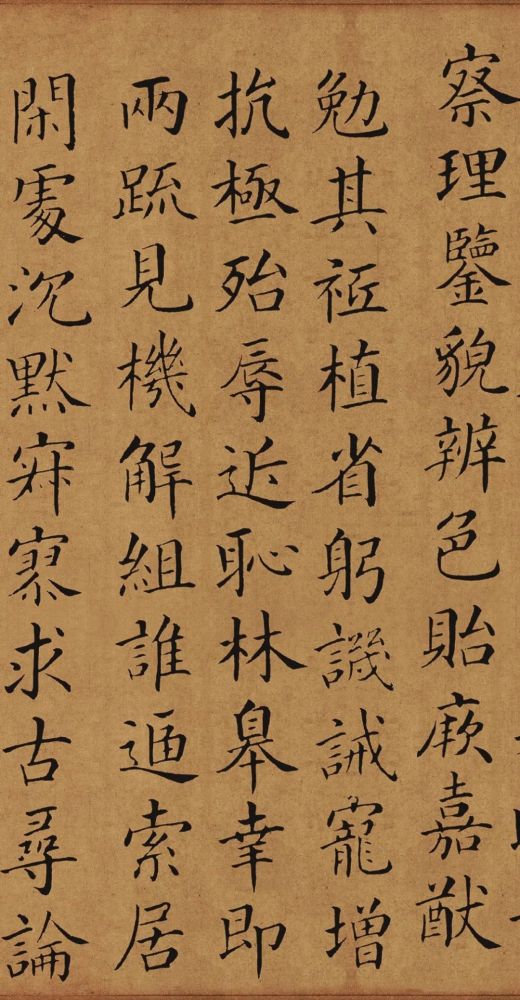 察理鑒貌辨色貽厥嘉猷
勉其祗植省躬譏誡寵增
抗極殆辱近恥林皋幸即
兩疏見機解組誰逼索居
閑處沉默寂寥求古尋論